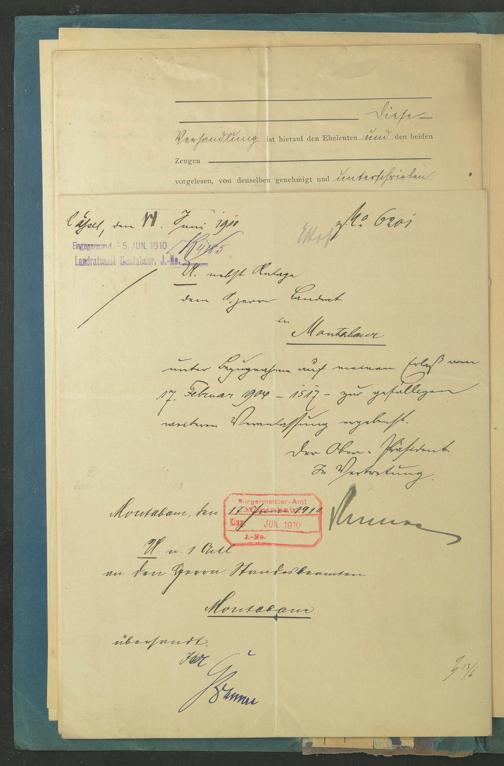 Diese
Verhandlung ist hierauf den Eheleuten und den beiden
Zeugen
vorgelesen, von denselben genehmigt und unterschrieben
Cassel, den 11. Juni 1910
No 6201
Eingegangen 5. JUN. 1910
Landratsamt Montabaur. J.-No.
U. nebst Anlage
dem Herrn Landrat
in
Montabaur
unter Bezugnahme auf meinen Erlaß vom
17. Februar 1904 - 1517 - zur gefälligen
weiteren Veranlassung ergebenst.
Der Ober-Präsident
In Vertretung.
Bürgermeister-Amt
Montabaur, den 17. 1910
Eing. JUN. 1910
J.-No.
U n. 1 Anl
an den Herrn Standesbeamten
Montabaur
übersandt.
Der